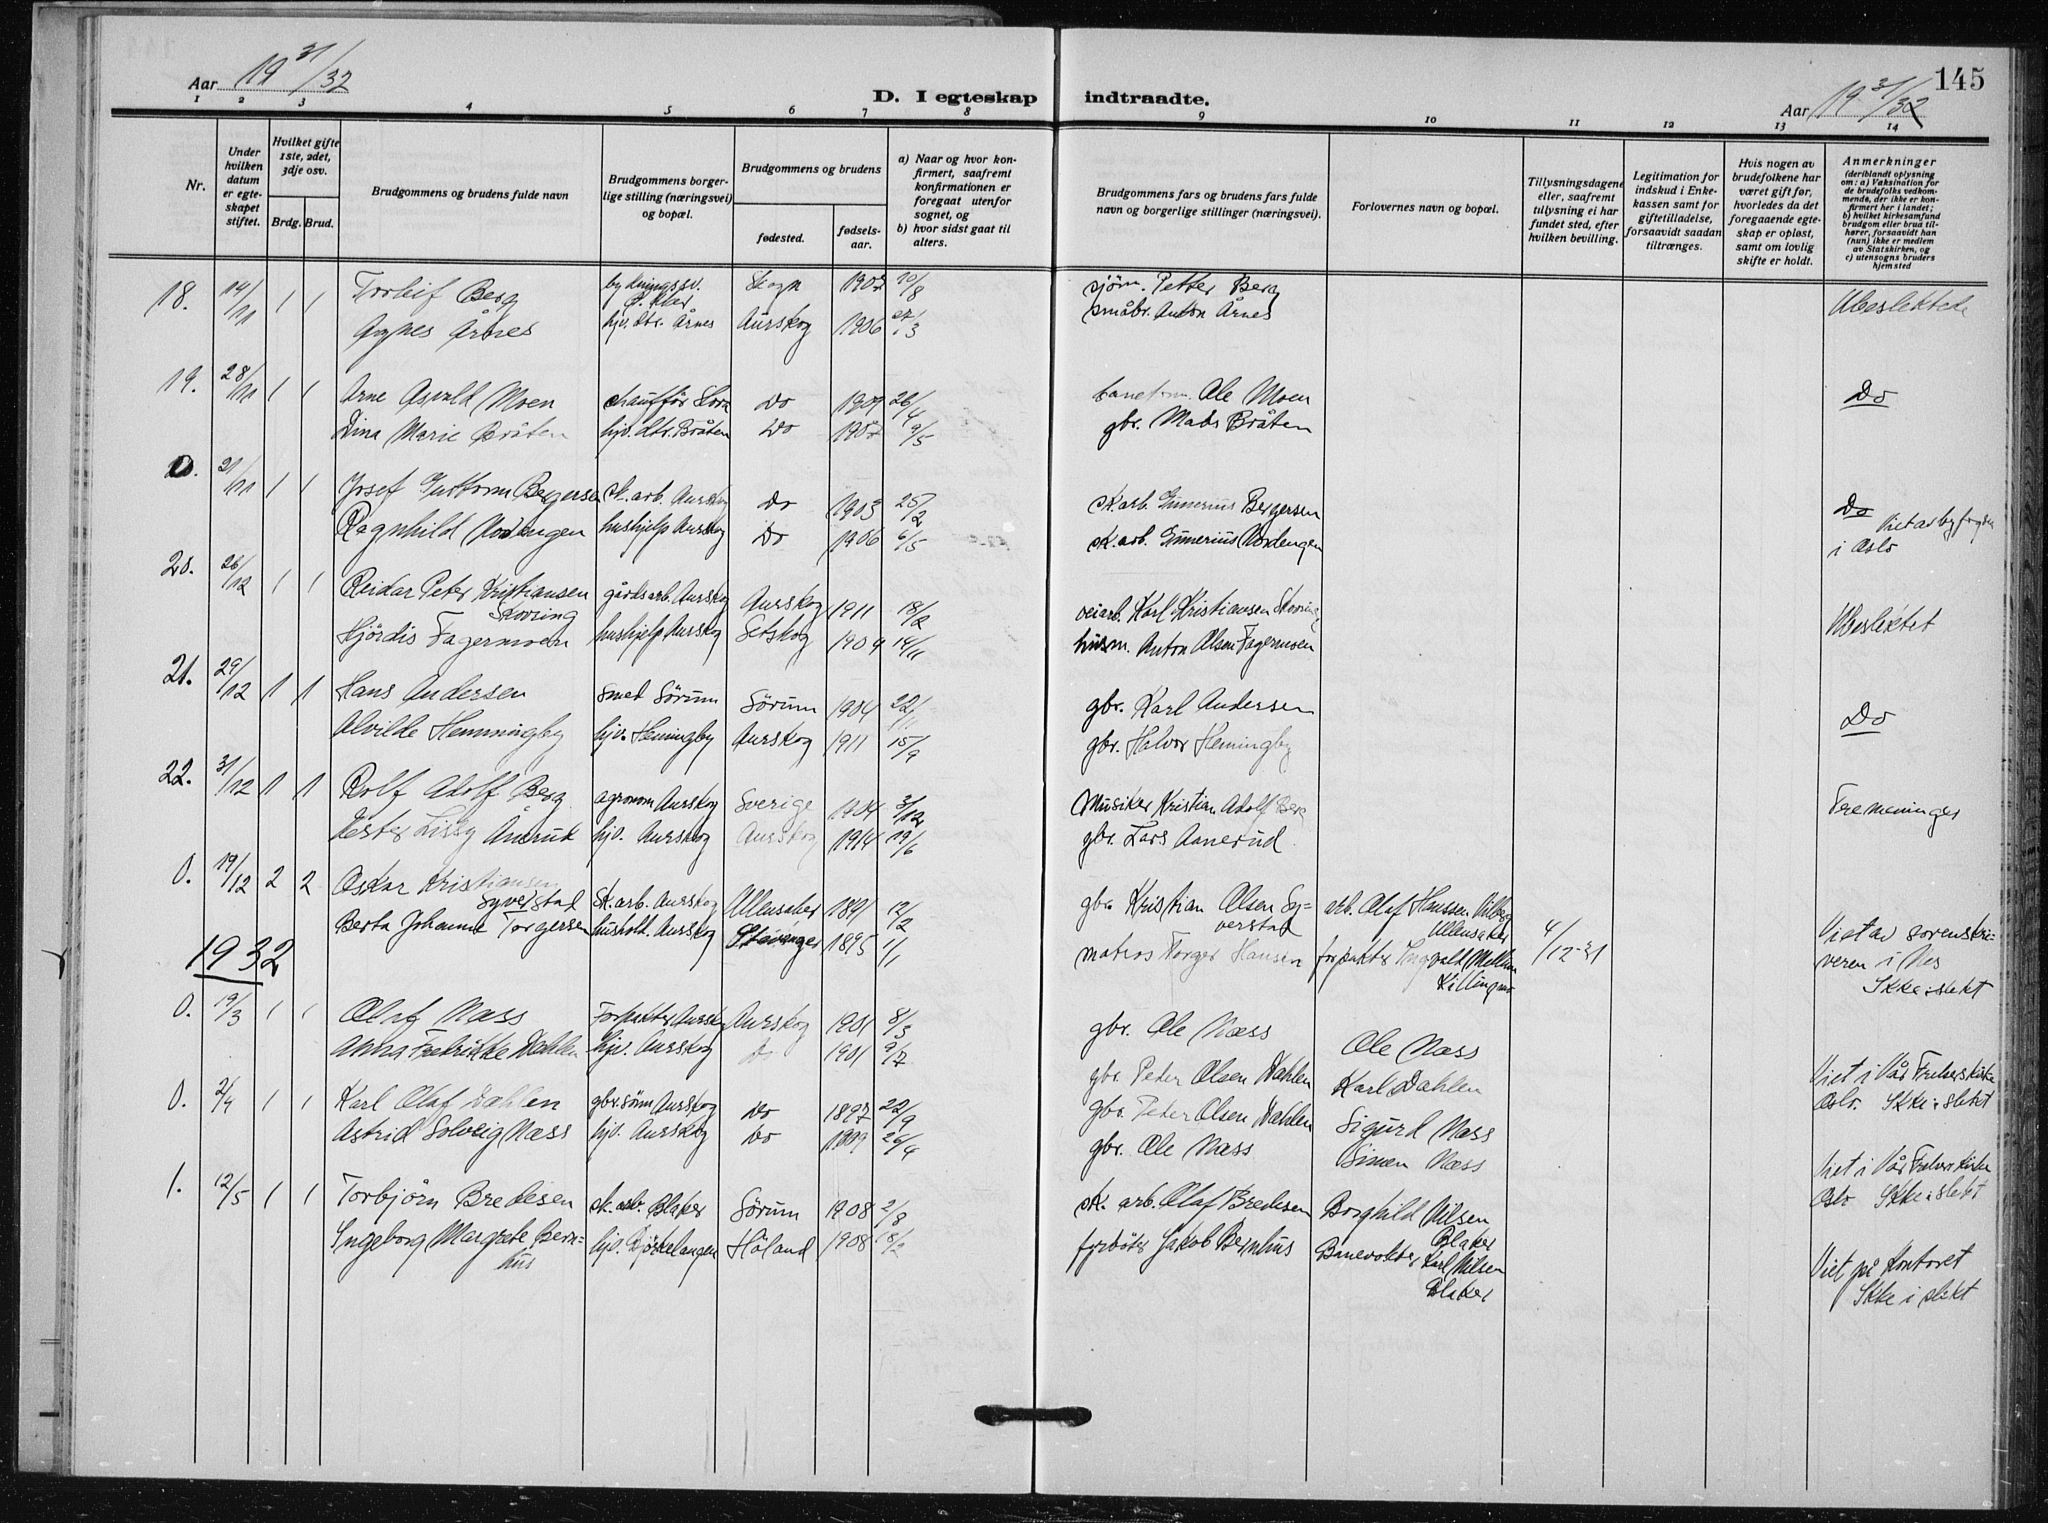 145
Aar 19 31/32
D. I egteskap indtraadte.
Aar 19 31/32
1 2 3 4 5 6 7 8 9 10 11 12 13 14
Nr.
Under hvilken datum er egteskapet stiftet.
Hvilket gifte 1ste, 2det, 3dje osv.
Brdg. Brud.
Brudgommens og brudens fulde navn
Brudgommens borgerlige stilling (næringsvei) og bopæl.
Brudgommens og brudens
fødested.
fødselsaar.
a) Naar og hvor konfirmert, saafremt konfirmationen er foregaat utenfor sognet, og
b) hvor sidst gaat til alters.
Brudgommens fars og brudens fars fulde navn og borgerlige stillinger (næringsvei).
Forlovernes navn og bopæl.
Tillysningsdagene eller, saafremt tillysning ei har fundet sted, efter hvilken bevilling.
Legitimation for indskud i Enkekassen samt for giftetilladelse, forsaavidt saadan tiltrænges.
Hvis nogen av brudefolkene har været gift før, hvorledes da det foregaaende egteskap er opløst, samt om lovlig skifte er holdt.
Anmerkninger (deriblandt oplysning om: a) Vaksination for de brudefolks vedkommende, der ikke er konfirmert her i landet; b) hvilket kirkesamfund brudgom eller brud tilhører, forsaavidt han (hun) ikke er medlem av Statskirken, og c) utensogns bruders hjemsted
18. 14/11 1 1 Berg Skogn 1907 10/8 sjöm. Petter Berg Ubeslektede
Agnes Årnes hjv. dtr. Årnes Aurskog 1906 27/3 småbr. Anton Årnes
19. 28/11 1 1 Arne Asvald Moen chauffør Do 1907 26/4 Ole Moen Do
Dina Marie Bråten hjv. dtr. Bråten Do 1907 9/5 gbr. Mads Bråten
0. 21/11 1 1 Josef Guttorm Bergersen sk. arb. Aurskog Do 1903 25/2 sk. arb. Gunerius Bergersen Do Viet av byfogden
Ragnhild Nordengen hushjelp Aurskog Do 1906 6/5 sk. arb. Gunerius Nordengen i Oslo
20. 26/12 1 1 Reidar Peter Kristiansen gårdsarb. Aurskog Aurskog 1911 18/2 veiarb. Karl Kristiansen Skovring Ubeslektet
Skovring
Hjördis Fagermoen hushjelp Aurskog Setskog 1909 14/11 husm. Anton Olsen Fagermoen
21. 29/12 1 1 Hans Andersen smed Sörum Sörum 1904 22/11 gbr. Karl Andersen Do
Alvilde Hemmingby hjv. Hemingby Aurskog 1911 15/9 gbr. Halvor Hemingby
22. 31/12 1 1 Rolf Adolf Berg agronom Aurskog Sverige 1904 3/12 Musiker Kristian Adolf Berg Fremeninger
Lissy Ånerud hjv. Aurskog Aurskog 1914 19/6 gbr. Lars Aanerud
0. 19/12 2 2 Oskar Kristiansen Sk. arb. Aurskog Ullensaker 1891 12/2 gbr. Kristian Olsen Sy- arb. Olaf Hanssen Vilberg 4/12-31
Syverstad verstad Ullensaker Viet av sorenskri-
Berta Johanne Torgersen hushold. Aurskog Stavanger 1895 1/1 matros Torger Hansen forpakter Ingvald Mellem Killingmo veren i Nes
Ikke i slekt
1932
0. 19/3 1 1 Olaf Næss Forpakter Aurskog Aurskog 1901 8/3 gbr. Ole Næss Ole Næss
Anna Fredrikke Dahlen hjv. Aurskog Do 1901 9/7 gbr. Peder Olsen Dahlen Karl Dahlen Viet i Vår Frelsers kirke
Oslo. Ikke i slekt
0. 2/4 1 1 Karl Olaf Dahlen gbr.sönn Aurskog Do 1897 22/9 gbr. Peter Olsen Dahlen Sigurd Næss
Astrid Solveig Næss hjv. Aurskog Do 1909 26/4 gbr. Ole Næss Simen Næss Viet i Vår Frelsers kirke
Oslo Ikke i slekt
1. 12/5 1 1 Torbjörn Bredesen sk. arb. Blaker Sörum 1908 2/8 sk. arb. Olaf Bredesen Borghild Nilsen
Blaker
Ingeborg Margrete Bern= hjv. Björkelangen Höland 1908 18/2 fyrböter Jakob Bernhus Banevokter Karl Nilsen Viet på Kontoret
hus Blaker Ikke i slekt